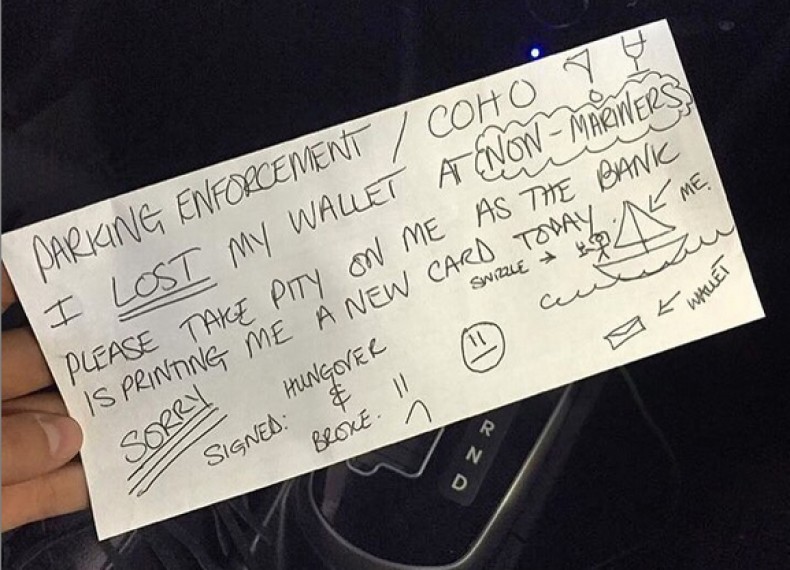 PARKING ENFORCEMENT / COHO
I LOST MY WALLET AT NON-MARINERS
PLEASE TAKE PITY ON ME AS THE BANK
IS PRINTING ME A NEW CARD TODAY.
SORRY
SIGNED: HUNGOVER
&
BROKE.
SWIZZLE →
ME.
WALLET
R
N
D